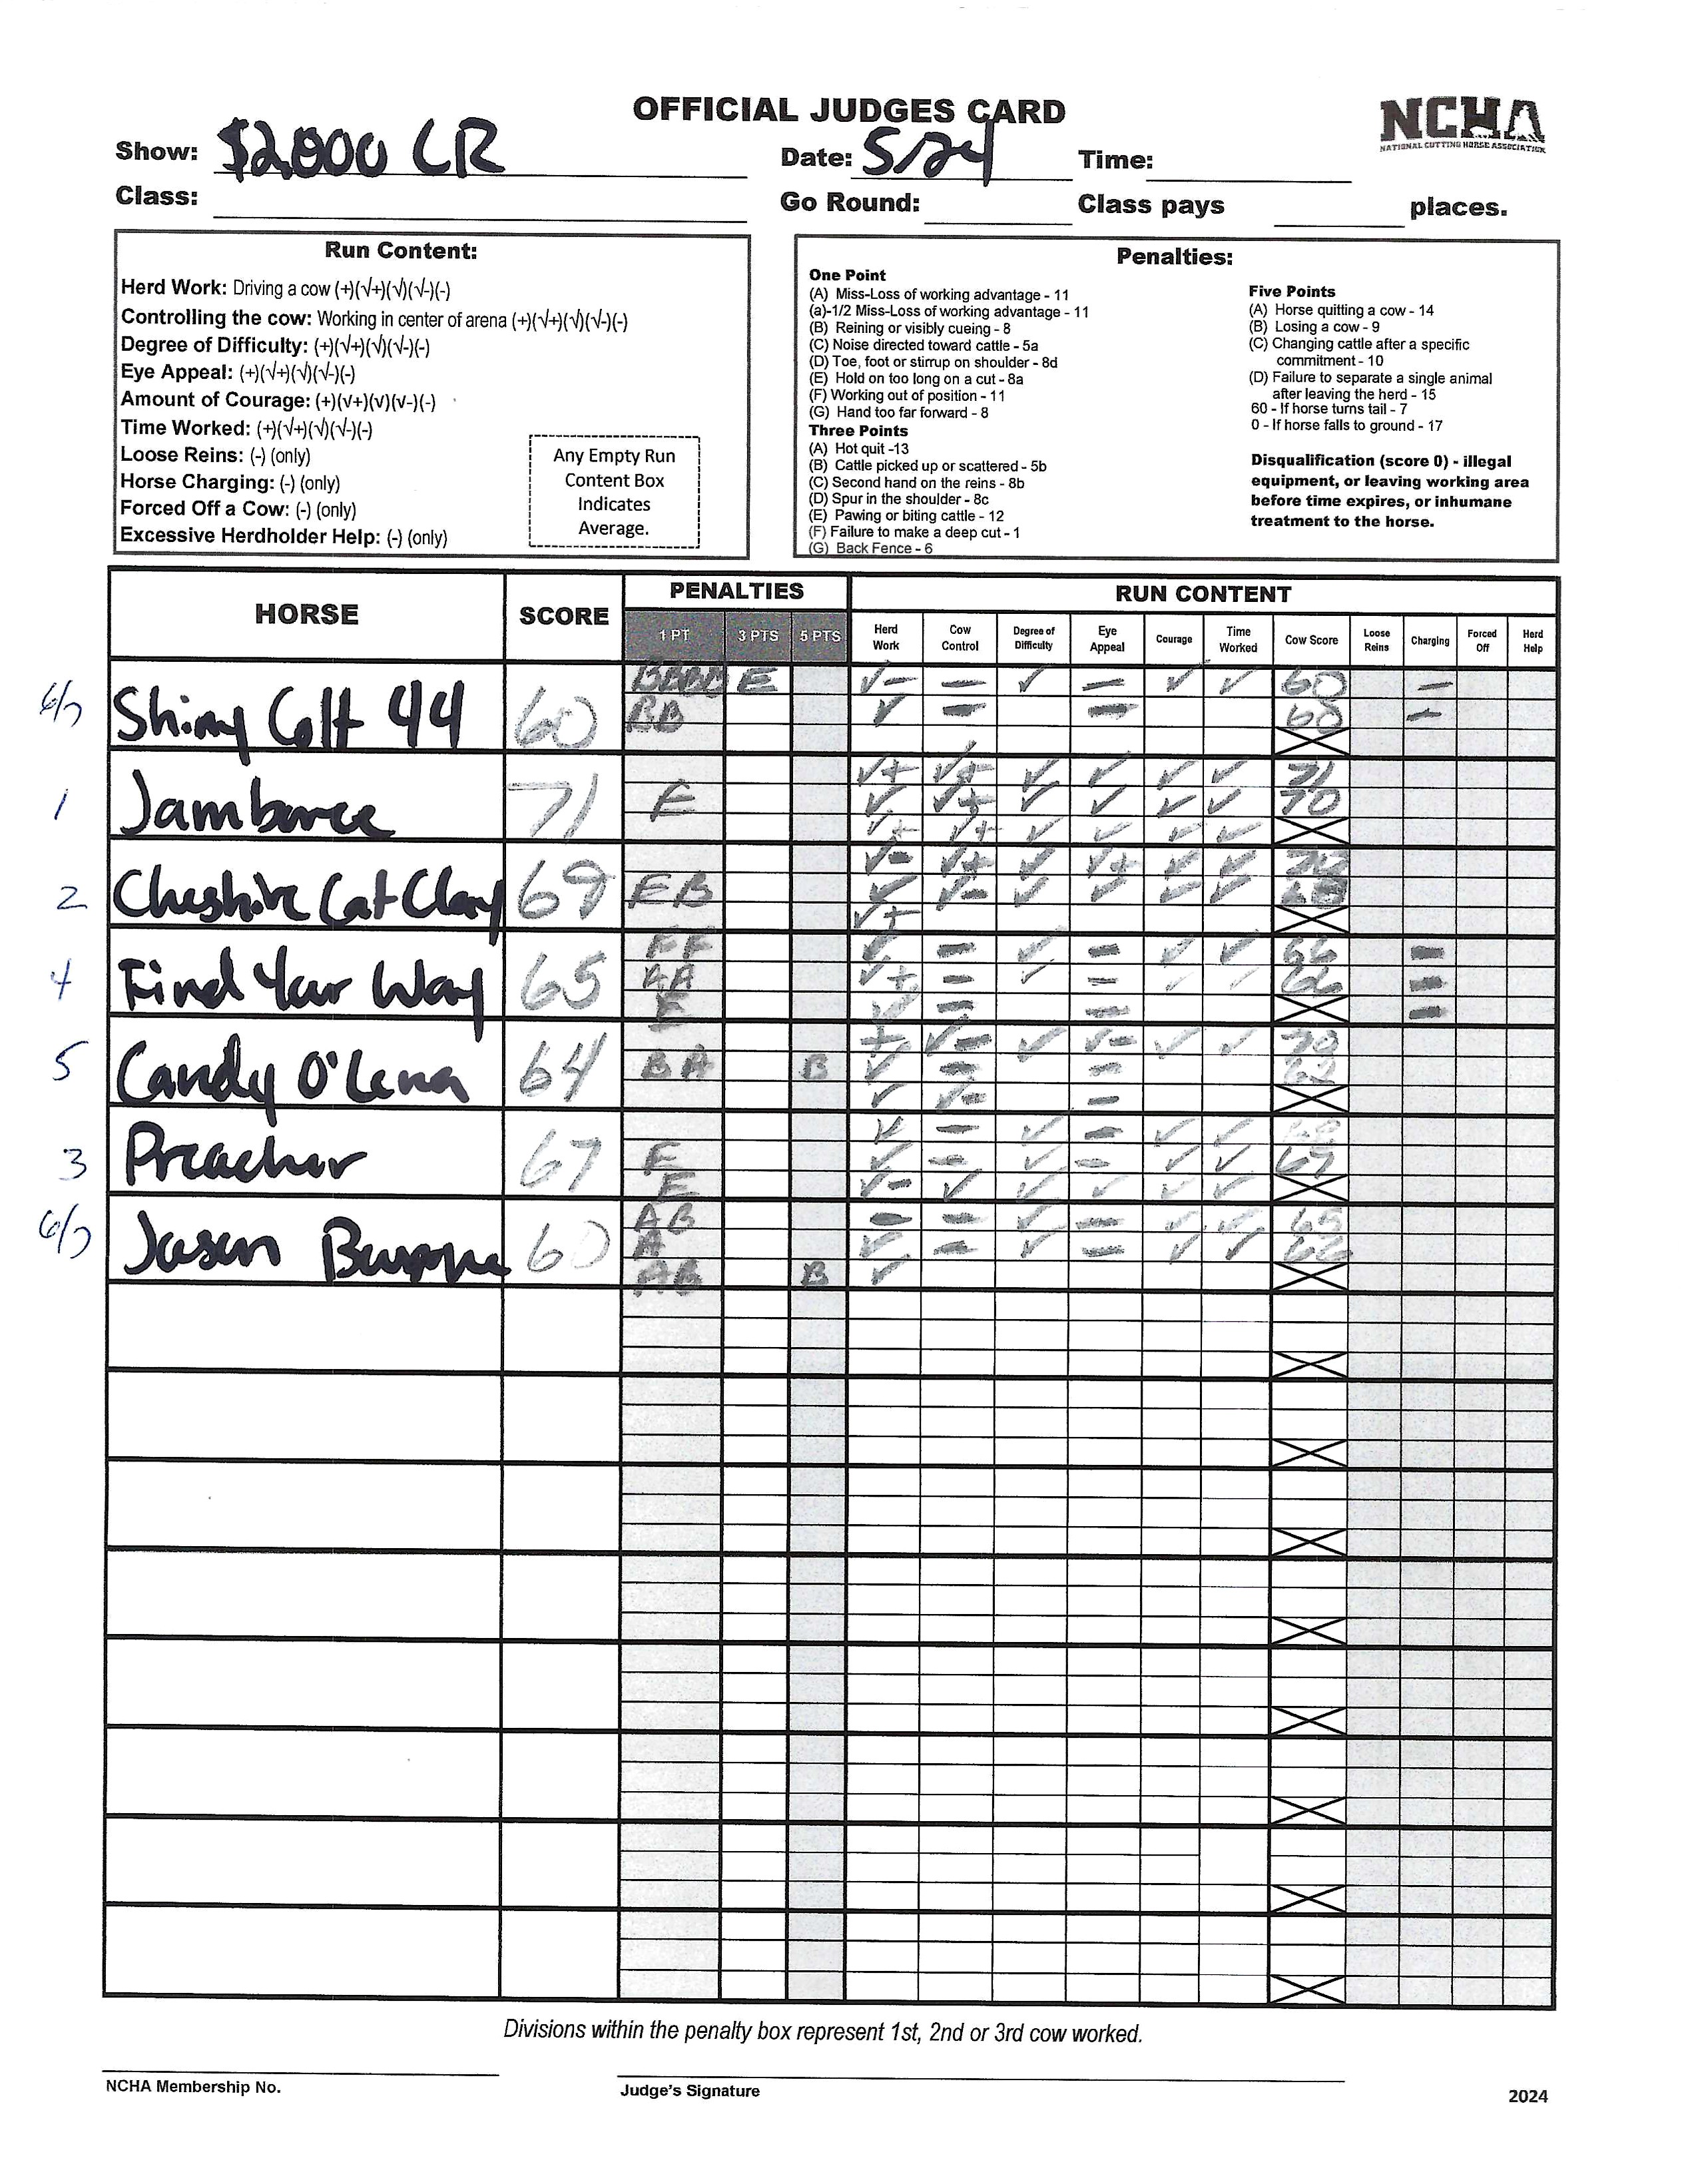 OFFICIAL JUDGES CARD
NCHA
NATIONAL CUTTING HORSE ASSOCIATION
Show: $2,000 LR Date: 5/24 Time:
Class: Go Round: Class pays places.
Run Content:
Herd Work: Driving a cow (+)(√+)(√)(√-)(-)
Controlling the cow: Working in center of arena (+)(√+)(√)(√-)(-)
Degree of Difficulty: (+)(√+)(√)(√-)(-)
Eye Appeal: (+)(√+)(√)(√-)(-)
Amount of Courage: (+)(v+)(v)(v-)(-)
Time Worked: (+)(√+)(√)(√-)(-)
Loose Reins: (-) (only)
Horse Charging: (-) (only)
Forced Off a Cow: (-) (only)
Excessive Herdholder Help: (-) (only)
Any Empty Run
Content Box
Indicates
Average.
Penalties:
One Point
(A) Miss-Loss of working advantage - 11
(a)-1/2 Miss-Loss of working advantage - 11
(B) Reining or visibly cueing - 8
(C) Noise directed toward cattle - 5a
(D) Toe, foot or stirrup on shoulder - 8d
(E) Hold on too long on a cut - 8a
(F) Working out of position - 11
(G) Hand too far forward - 8
Three Points
(A) Hot quit -13
(B) Cattle picked up or scattered - 5b
(C) Second hand on the reins - 8b
(D) Spur in the shoulder - 8c
(E) Pawing or biting cattle - 12
(F) Failure to make a deep cut - 1
(G) Back Fence - 6
Five Points
(A) Horse quitting a cow - 14
(B) Losing a cow - 9
(C) Changing cattle after a specific
commitment - 10
(D) Failure to separate a single animal
after leaving the herd - 15
60 - If horse turns tail - 7
0 - If horse falls to ground - 17
Disqualification (score 0) - illegal
equipment, or leaving working area
before time expires, or inhumane
treatment to the horse.
HORSE SCORE PENALTIES RUN CONTENT
1 PT 3 PTS 5 PTS Herd Work Cow Control Degree of Difficulty Eye Appeal Courage Time Worked Cow Score Loose Reins Charging Forced Off Herd Help
BBBB E √- - √ - √ √ 60 -
6/7 Shiny Colt 44 60 BB √ - - 60 -
√+ √+ √ √ √ √ 71
1 Jamboree 71 E √ √+ √ √ √ √ 70
√+ √+ √ √ √ √
√- √+ √ √+ √ √
2 Cheshire Cat Clay 69 E B √ √- √ √ √ √
√+
FF √ - √ - √ √ 66 -
4 Find Your Way 65 AA √+ - √ - √ √ 66 -
E √ - - -
+ √- √ √- √ √ 70
5 Candy O'Lena 64 B A B √ - -
√ √- -
√ - √ - √ √
3 Preacher 67 E √ - √ - √ √ 67
E √- √ √ √ √ √
AB - - √ - √ √ 65
6/7 Jason 60 A √ - √ - √ √ 66
AB B √
Divisions within the penalty box represent 1st, 2nd or 3rd cow worked.
NCHA Membership No. Judge's Signature 2024